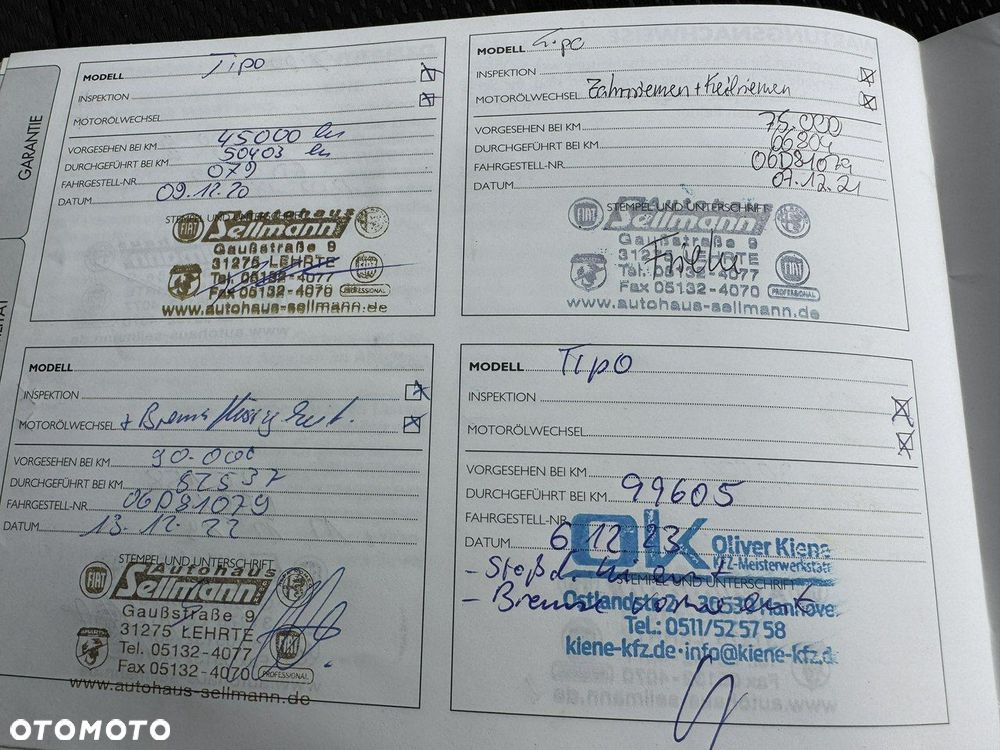 GARANTIE
MODELL Tipo
INSPEKTION
MOTORÖLWECHSEL
VORGESEHEN BEI KM 45000 km
DURCHGEFÜHRT BEI KM 50403 km
FAHRGESTELL-NR. 079
DATUM 09.12.20
STEMPEL UND UNTERSCHRIFT
Autohaus
Sellmann
FIAT
Gaußstraße 9
31275 LEHRTE
Tel. 05132-4077
Fax 05132-4070
PROFESSIONAL
www.autohaus-sellmann.de
MODELL Tipo
INSPEKTION
MOTORÖLWECHSEL Zahnriemen + Keilriemen
VORGESEHEN BEI KM 75.000
DURCHGEFÜHRT BEI KM 66804
FAHRGESTELL-NR. 06D81079
DATUM 07.12.21
STEMPEL UND UNTERSCHRIFT
Autohaus
Sellmann
FIAT
Gaußstraße 9
31275 LEHRTE
Tel. 05132-4077
Fax 05132-4070
FIAT
PROFESSIONAL
www.autohaus-sellmann.de
MODELL
INSPEKTION
MOTORÖLWECHSEL + Bremsflüssigkeit.
VORGESEHEN BEI KM 90.000
DURCHGEFÜHRT BEI KM 82537
FAHRGESTELL-NR. 06D81079
DATUM 13.12.22
STEMPEL UND UNTERSCHRIFT
Autohaus
Sellmann
FIAT
Gaußstraße 9
31275 LEHRTE
Tel. 05132-4077
Fax 05132-4070
FIAT
PROFESSIONAL
www.autohaus-sellmann.de
MODELL Tipo
INSPEKTION
MOTORÖLWECHSEL
VORGESEHEN BEI KM
DURCHGEFÜHRT BEI KM 99605
FAHRGESTELL-NR.
DATUM 6 12 23
OK Oliver Kiene
KFZ-Meisterwerkstatt
STEMPEL UND UNTERSCHRIFT
- Bremse
30539 Hannover
Tel.: 0511/52 57 58
kiene-kfz.de · info@kiene-kfz.de
OTOMOTO